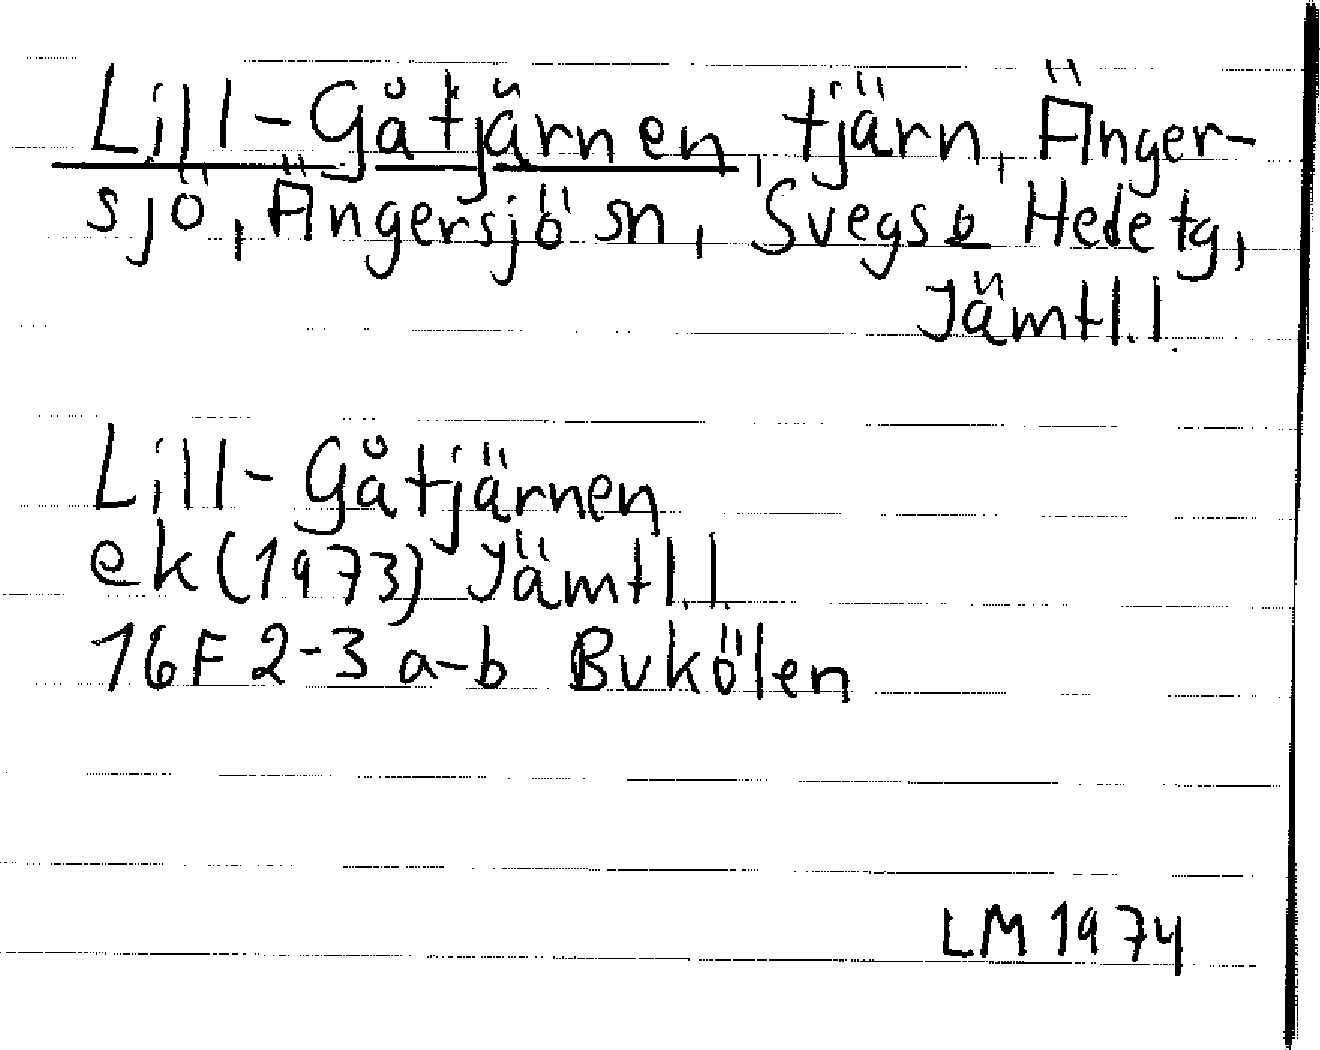 Lill-Gåtjärnen, tjärn, Änger-
sjö, Ängersjö sn, Svegs o Hede tg,
Jämtl.l.
Lill-Gåtjärnen
ek (1973) Jämtl.l.
16F 2-3 a-b Bukölen
LM 1974